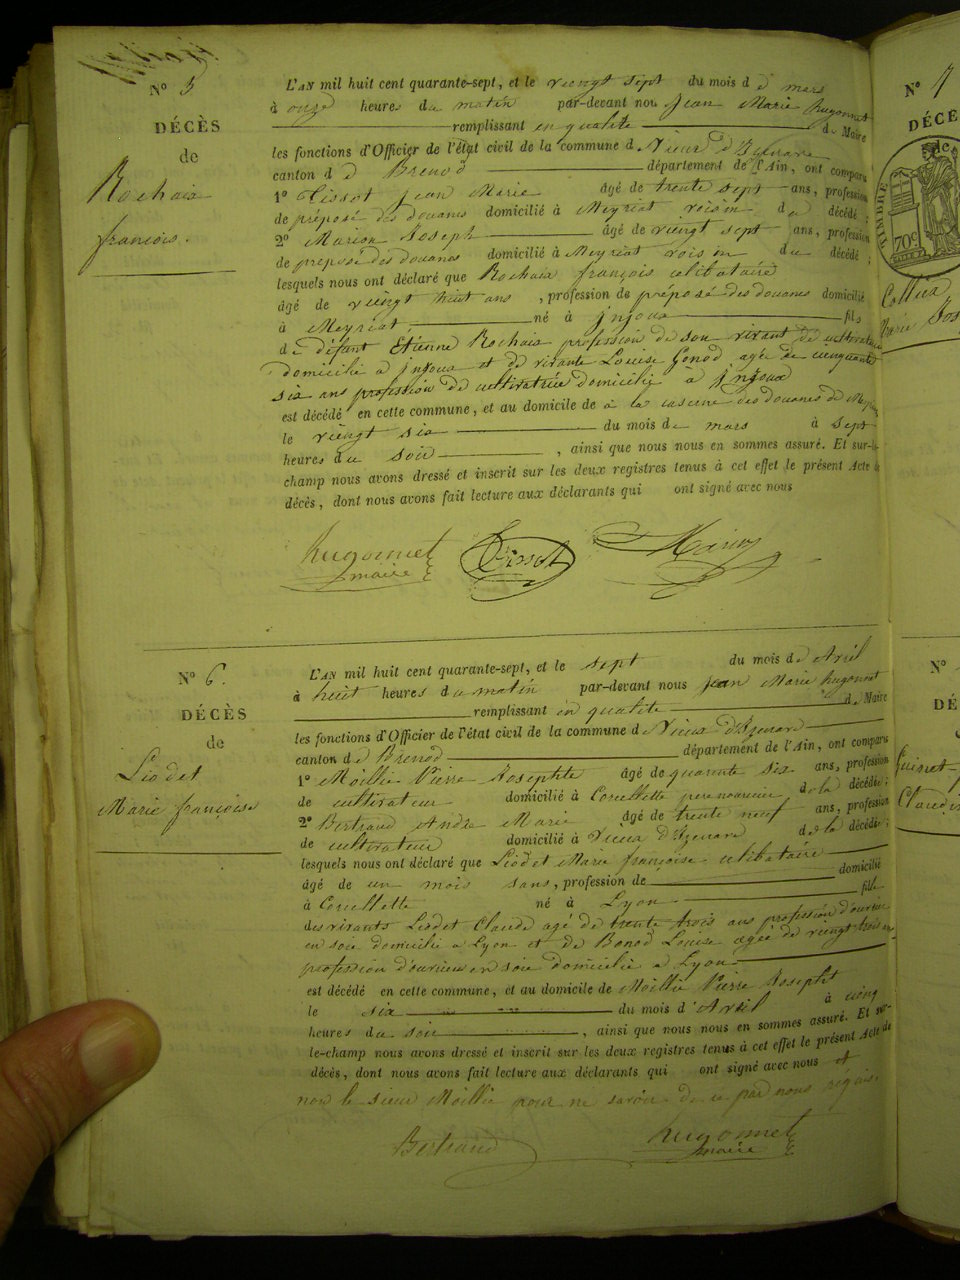 N° 5
DÉCÈS
de
Rochaix
françois.
L'AN mil huit cent quarante-sept, et le vingt sept du mois d e mars
à onze heures du matin par-devant nou Jean Marie hugonnet
remplissant en qualité de Maire
les fonctions d'Officier de l'état civil de la commune d Vieux d'Izenave
canton d e Brenod département de l'Ain, ont comparu
1° Tissot Jean Marie âgé de trente sept ans, profession
de préposé des douanes domicilié à Meyriat voisin du décédé ;
2° Marion Joseph âgé de vingt sept ans, profession
de preposé des douanes domicilié à Meyriat voisin du décédé ;
lesquels nous ont déclaré que Rochaix françois celibataire
âgé de vingt huit ans , profession de préposé des douanes domicilié
à Meyriat, né à injoux fils
de défant Etienne Rochaix profession de son vivant de cultivateur
domicilié a injoux et de vivante Louise Genod agée de cinquante
six ans profession de cultivatrice domicilié à injoux
est décédé en cette commune, et au domicile de à la caserne des douanes de Meyriat
le vingt six du mois de mars à sept
heures du soir , ainsi que nous nous en sommes assuré. Et sur-le-
champ nous avons dressé et inscrit sur les deux registres tenus à cet effet le présent Acte de
décès, dont nous avons fait lecture aux déclarants qui ont signé avec nous
hugonnet
maire
Tissot
Marion
N° 6.
DÉCÈS
de
Liodet
Marie françoise
L'AN mil huit cent quarante-sept, et le sept du mois d Avril
à huit heures du matin par-devant nous jean Marie hugonnet
remplissant en qualité de Maire
les fonctions d'Officier de l'état civil de la commune d Vieux d'Izenave
canton de Brenod département de l'Ain, ont comparu
1° Moillie Pierre Josephte âgé de quarante six ans, profession
de cultivateur domicilié à Corcellette pere nouricier de la décédée ;
2° Bertrand André Marie âgé de trente neuf ans, profession
de cultivateur domicilié à Vieux d'Izenave de la décédée ;
lesquels nous ont déclaré que Liodet Marie françoise celibataire
âgé de un mois sans, profession de domicilié
à Corcellette né à Lyon fille
des vivants Liodet Claude agé de trente trois ans profession d'ouvrier
en soie domicilié a Lyon et de Bonod Louise agée de vingt trois ans
profession d'ouvriere en soie domicilié a Lyon
est décédé en cette commune, et au domicile de Moillie Pierre Josepht
le six du mois d'Avril à cinq
heures du soir , ainsi que nous nous en sommes assuré. Et sur-
le-champ nous avons dressé et inscrit sur les deux registres tenus à cet effet le présent Acte de
décès, dont nous avons fait lecture aux déclarants qui ont signé avec nous et
non le sieur Moillie pour ne savoir de ce par nous réquis.
Bertrand
hugonnet
maire
N° 7
DÉCÈ
de
TIMBRE
70c
Collu
Marie Jos
N°
DÉ
Guinet
Claud